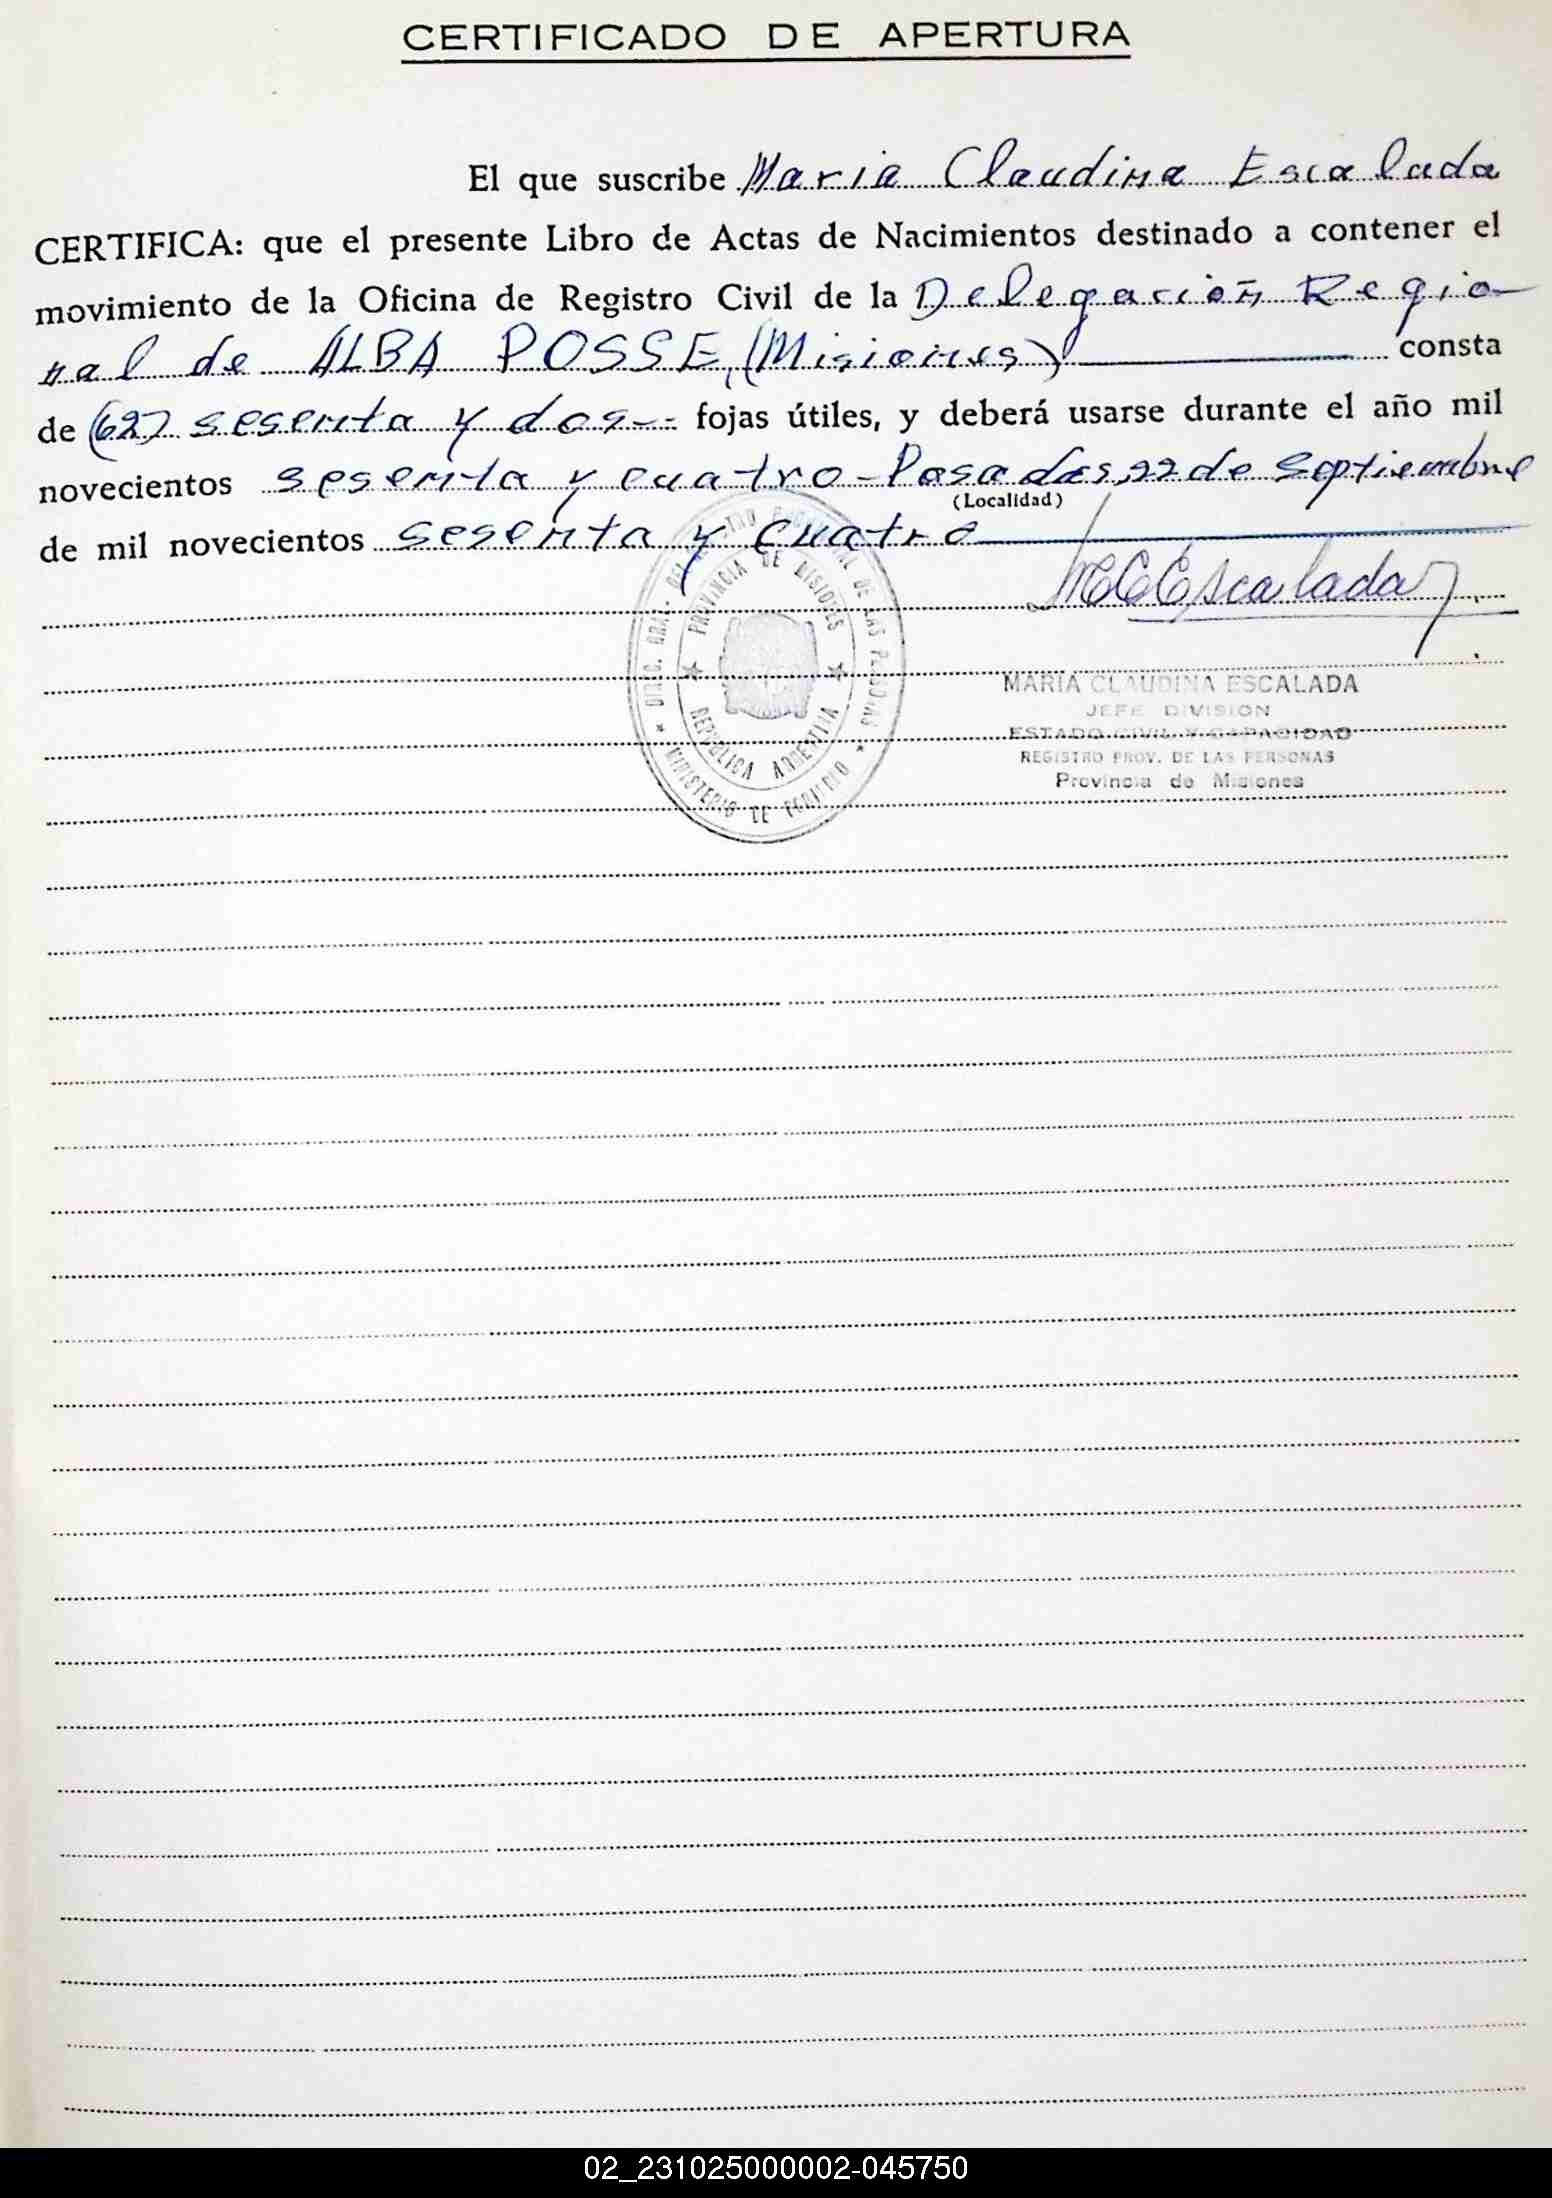 CERTIFICADO DE APERTURA
El que suscribe Maria Claudina Escalada
CERTIFICA: que el presente Libro de Actas de Nacimientos destinado a contener el
movimiento de la Oficina de Registro Civil de la Delegación Regio-
nal de ALBA POSSE, (Misiones) consta
de (62) sesenta y dos-- fojas útiles, y deberá usarse durante el año mil
novecientos sesenta y cuatro - Posadas, 22 de septiembre
(Localidad)
de mil novecientos sesenta y cuatro
MCEscalada
DIREC. GRAL. DEL REGISTRO PROVINCIAL DE LAS PERSONAS
PROVINCIA DE MISIONES
REPUBLICA ARGENTINA
MINISTERIO DE GOBIERNO
MARIA CLAUDINA ESCALADA
JEFE DIVISION
ESTADO CIVIL Y CAPACIDAD
REGISTRO PROV. DE LAS PERSONAS
Provincia de Misiones
02_231025000002-045750